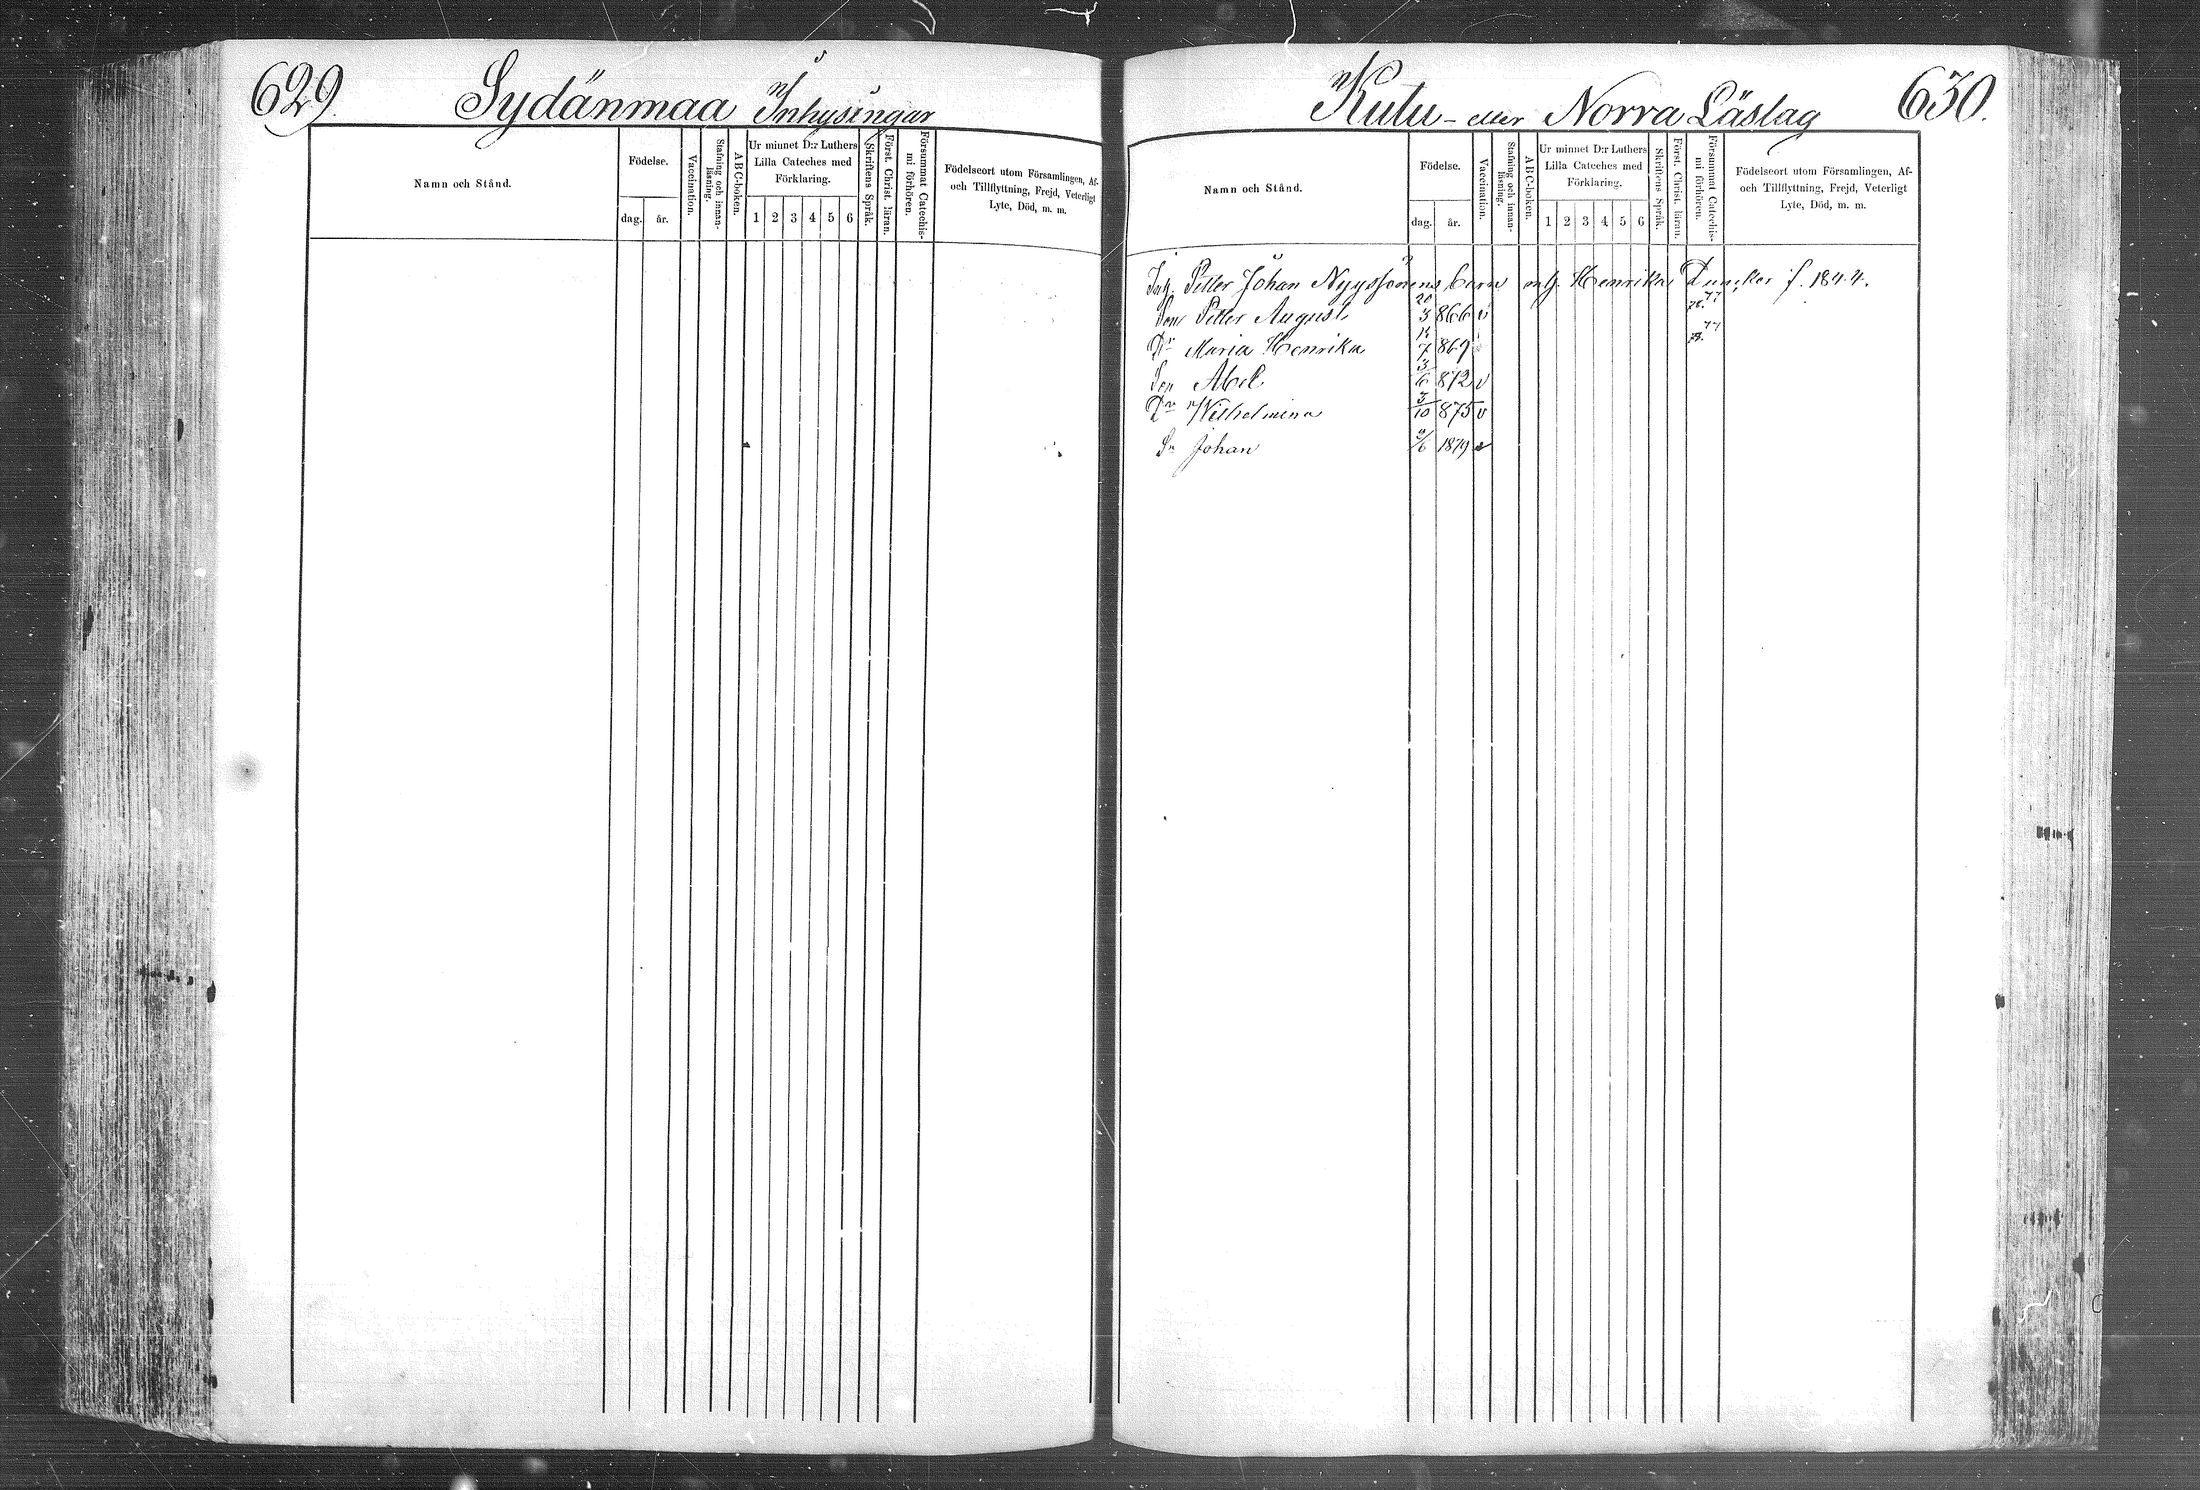 629.
Sydänmaa Inhysingar
Namn och Stånd.
Födelse.
dag.
år.
Vaccination.
Stafning och innanläsning.
ABC-boken.
Ur minnet D:r Luthers
Lilla Cateches med
Förklaring.
1 2 3 4 5 6
Skriftens Språk.
Först. Christ. läran.
Försummat Catechismi förhören.
Födelseort utom Församlingen, Af-
och Tillflyttning, Frejd, Veterligt
Lyte, Död, m. m.
Kutu- eller Norra Läslag
630.
Namn och Stånd.
Födelse.
dag.
år.
Vaccination.
Stafning och innanläsning.
ABC-boken.
Ur minnet D:r Luthers
Lilla Cateches med
Förklaring.
1 2 3 4 5 6
Skriftens Språk.
Först. Christ. läran.
Försummat Catechismi förhören.
Födelseort utom Församlingen, Af-
och Tillflyttning, Frejd, Veterligt
Lyte, Död, m. m.
Inh. Petter Johan Nyyssönens barn m h. Henrika Duncker f. 1844.
Son Petter August 20/3 866 v 77
Dr Maria Henrika 14/7 869 77
Son Abel 872 v
Dr Wilhelmina 3/10 875 v
Sn Johan 1879 v